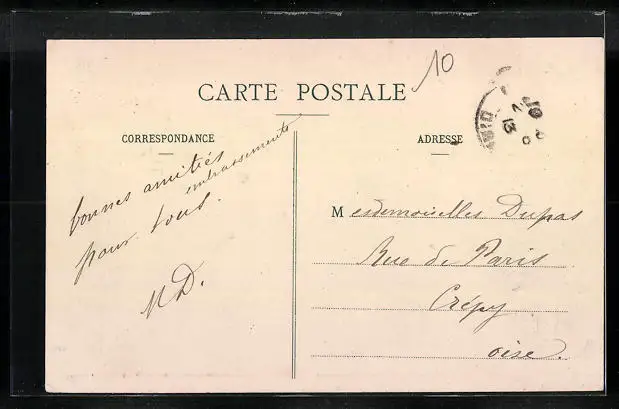 10
CARTE POSTALE
CORRESPONDANCE
ADRESSE
bonnes amitiés
embrassements
pour tous.
MD.
Mesdemoiselles Dupas
Rue de Paris
Crépy
oise.